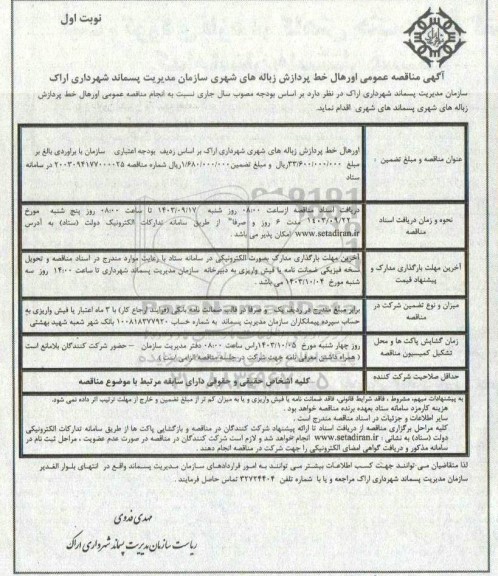 نوبت اول
آگهی مناقصه عمومی اورهال خط پردازش زباله های شهری سازمان مدیریت پسماند شهرداری اراک
سازمان مدیریت پسماند شهرداری اراک در نظر دارد بر اساس بودجه مصوب سال جاری نسبت به انجام مناقصه عمومی اورهال خط پردازش
زباله های شهری پسماند های شهری اقدام نماید.
عنوان مناقصه و مبلغ تضمین :
اورهال خط پردازش زباله های شهری شهرداری اراک بر اساس ردیف بودجه اعتباری سازمان با برآوردی بالغ بر
مبلغ ۳۳/۶۰۰/۰۰۰/۰۰۰ریال و مبلغ تضمین ۱/۶۸۰/۰۰۰/۰۰۰ریال شماره مناقصه ۲۰۰۳۰۹۴۱۷۷۰۰۰۰۲۵ در سامانه
ستاد
نحوه و زمان دریافت اسناد
مناقصه
دریافت اسناد مناقصه ازساعت ۰۸:۰۰ روز شنبه ۱۴۰۳/۰۹/۱۷ تا ساعت ۰۸:۰۰ روز پنج شنبه مورخ
۱۴۰۳/۰۹/۲۲ مدت ۶ روز و صرفا" از طریق سامانه تدارکات الکترونیک دولت (ستاد) به آدرس
www.setadiran.ir امکان پذیر می باشد .
آخرین مهلت بارگذاری مدارک و
پیشنهاد قیمت
آخرین مهلت بارگذاری مدارک بصورت الکترونیکی در سامانه ستاد با رعایت موارد مندرج در اسناد مناقصه و تحویل
نسخه فیزیکی ضمانت نامه یا فیش واریزی به دبیرخانه سازمان مدیریت پسماند شهرداری تا ساعت ۱۴:۰۰ روز سه
شنبه مورخ ۱۴۰۳/۱۰/۰۴ می باشد .
میزان و نوع تضمین شرکت در
مناقصه
برابر مبلغ مندرج در ردیف یک و صرفا در قالب ضمانت نامه بانکی (فرآیند ارجاع کار) با ۳ ماه اعتبار یا فیش واریزی به
حساب سپرده پیمانکاران سازمان مدیریت پسماند به شماره حساب ۱۰۰۸۱۸۳۷۷۹۲۰ بانک شهر شعبه شهید بهشتی
زمان گشایش پاکت ها و محل
تشکیل کمیسیون مناقصه
روز چهار شنبه مورخ ۱۴۰۳/۱۰/۰۵راس ساعت ۰۸:۰۰ دفتر مدیریت سازمان – حضور شرکت کنندگان بلامانع است
( همراه داشتن معرفی نامه جهت شرکت در جلسه مناقصه الزامی است ).
حداقل صلاحیت شرکت کننده
کلیه اشخاص حقیقی و حقوقی دارای سابقه مرتبط با موضوع مناقصه
به پیشنهادات مبهم، مشروط ، فاقد شرایط قانونی، فاقد ضمانت نامه یا فیش واریزی و یا به میزان کم تر از مبلغ تضمین و خارج از مهلت ترتیب اثر داده نمی شود.
هزینه کارمزد سامانه ستاد بعهده برنده مناقصه خواهد بود .
سایر اطلاعات و جزئیات در اسناد مناقصه مندرج است .
کلیه مراحل برگزاری مناقصه از دریافت اسناد تا ارائه پیشنهاد شرکت کنندگان در مناقصه و بازگشایی پاکت ها از طریق سامانه تدارکات الکترونیکی
دولت (ستاد) به نشانی : www.setadiran.ir انجام خواهد شد و لازم است شرکت کنندگان در مناقصه در صورت عدم عضویت ، مراحل ثبت نام در
سامانه مذکور و دریافت گواهی امضای الکترونیکی را جهت شرکت در مناقصه انجام دهند .
لذا متقاضیان می توانند جهت کسب اطلاعات بیشتر می توانند به امور قراردادهای سازمان مدیریت پسماند واقع در انتهای بلوار الغدیر
سازمان مدیریت پسماند شهرداری اراک مراجعه و یا با شماره تلفن ۳۲۷۲۴۴۰۴ تماس حاصل فرمایند .
مهدی فدوی
ریاست سازمان مدیریت پسماند شهرداری اراک